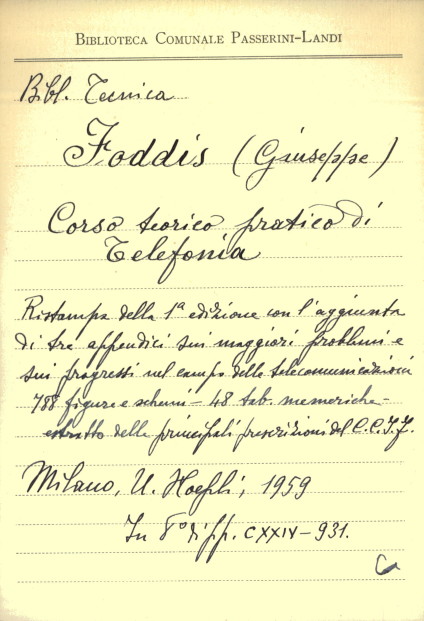 BIBLIOTECA COMUNALE PASSERINI-LANDI
Bibl. Tecnica
Foddis (Giuseppe)
Corso teorico pratico di
Telefonia
Ristampa della 1ª edizione con l'aggiunta
di tre appendici sui maggiori problemi e
sui progressi nel campo delle telecomunicazioni
788 figure e schemi - 48 tab. numeriche -
estratto delle principali prescrizioni del C.C.I.F.
Milano, U. Hoepli, 1959
In 8° di pp. CXXIV-931.